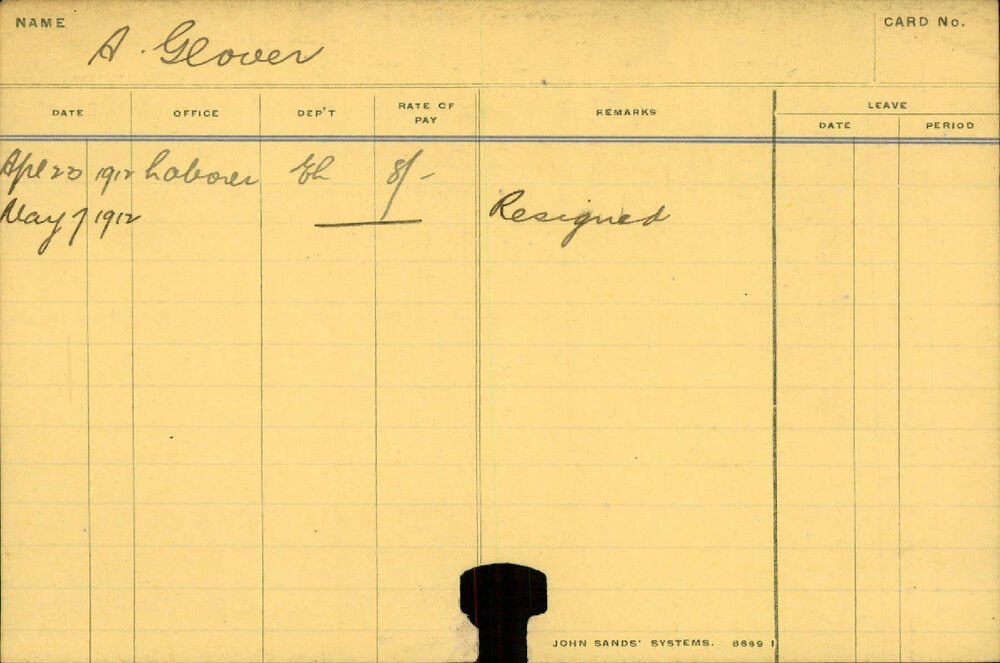 NAME A. Glover CARD No.
DATE OFFICE DEP'T RATE OF PAY REMARKS LEAVE
DATE PERIOD
Apl 23 1912 Laborer 8/-
May 7 1912 Resigned
JOHN SANDS' SYSTEMS. 8689 1